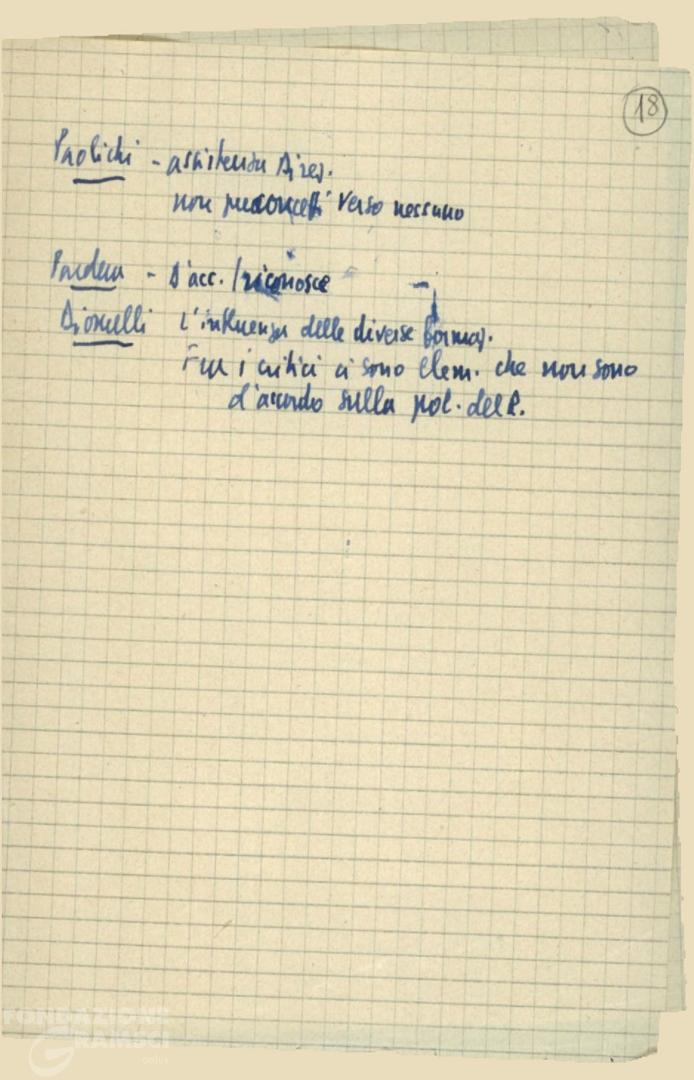 18
Paolichi - assistenza Direz.
non preconcetti verso nessuno
- D'acc. / riconosce
L'influenza delle diverse formaz.
Fra i critici ci sono elem. che non sono
d'accordo sulla pol. del P.
FONDAZIONE
GRAMSCI
onlus